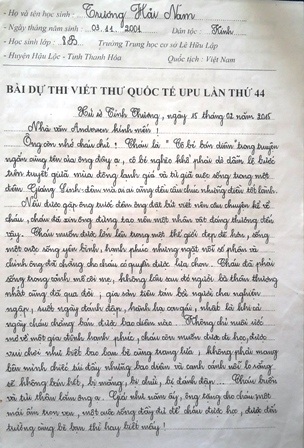 - Họ và tên học sinh : Trương Hải Nam
- Ngày tháng năm sinh : 03.11.2001 Dân tộc : Kinh
- Học sinh lớp : 8B Trường Trung học cơ sở Lê Hữu Lập
- Huyện Hậu Lộc - Tỉnh Thanh Hóa Quốc tịch : Việt Nam
BÀI DỰ THI VIẾT THƯ QUỐC TẾ UPU LẦN THỨ 44
Xứ sở Tình Thương, ngày 15 tháng 02 năm 2015
Nhà văn Andersen kính mến !
Ông còn nhớ cháu chứ ? Cháu là " Cô bé bán diêm" trong truyện
ngắn cùng tên của ông đây ạ, cô bé nghèo khổ phải đi dầm lê bước
trên tuyết giữa mùa đông lạnh giá và từ giã cuộc sống trong một
đêm Giáng Sinh - đêm mà ai ai cũng đều cầu chúc những điều tốt lành.
Nếu được gặp ông trước đêm ông đặt bút viết nên câu chuyện kể về
cháu, cháu sẽ xin ông đừng tạo nên một nhân vật đáng thương đến
vậy. Cháu muốn được lớn lên trong một thế giới đẹp đẽ hơn, sống
một cuộc sống yên bình, hạnh phúc nhưng ngặt nỗi số phận và
chính ông đã không cho cháu có quyền được lựa chọn. Cháu đã phải
sống trong cảnh mồ côi mẹ, không lâu sau đó người bà thân thương
nhất cũng đã qua đời , gia sản tiêu tán bởi người cha nghiện
ngập, suốt ngày đánh đập, hành hạ con gái, nhất là khi cả
ngày cháu không bán được bao diêm nào . Không chỉ nuôi ước
mơ về một gia đình hạnh phúc, cháu còn muốn được đi học, được
vui chơi như biết bao bạn bè cùng trang lứa , không phải mang
bên mình chiếc túi đầy những bao diêm và canh cánh nỗi lo sợ
sẽ không bán hết, bị mắng, bị chửi , bị đánh đập ... Cháu buồn
và tủi thân lắm ông ạ. Giá như năm ấy, ông sáng cho cháu một
mái ấm trọn vẹn , một cuộc sống đầy đủ để cháu được học , được đến
trường cùng bè bạn thì hay biết mấy !